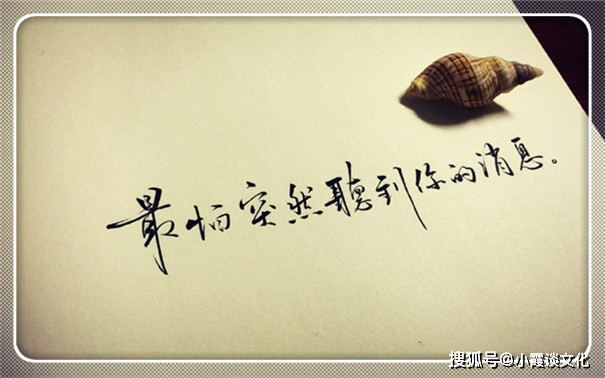 最怕突然聽到你的消息。
搜狐号@小霞谈文化